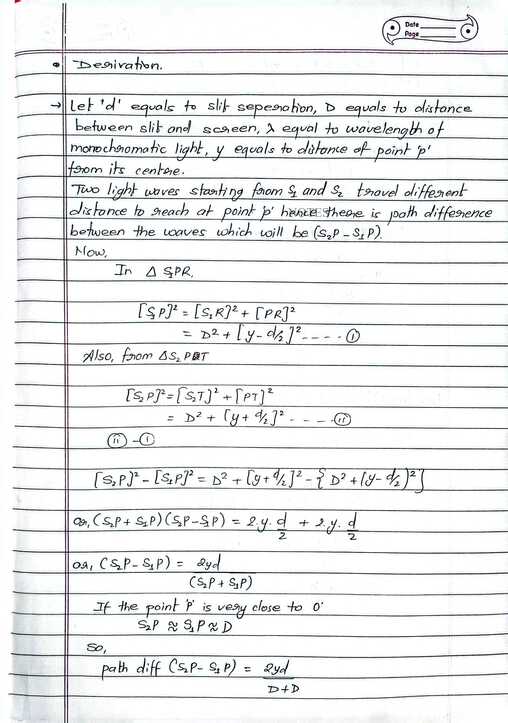 Date
Page
• Derivation.
→ Let 'd' equals to slit seperation, D equals to distance
between slit and screen, λ equal to wavelength of
monochromatic light, y equals to distance of point 'p'
from its centre.
Two light waves starting from S₁ and S₂ travel different
distance to reach at point 'p' hence there is path difference
between the waves which will be (S₂P - S₁P).
Now,
In Δ S₁PR,
[S₁P]² = [S₁R]² + [PR]²
= D² + [y - d/2]² ---- ①
Also, from ΔS₂PT
[S₂P]² = [S₂T]² + [PT]²
= D² + [y + d/2]² - - - - ⑪
⑪ - ①
[S₂P]² - [S₁P]² = D² + [y + d/2]² - { D² + (y - d/2)² }
or, (S₂P + S₁P) (S₂P - S₁P) = 2.y. d/2 + 2.y. d/2
or, (S₂P - S₁P) = 2yd / (S₂P + S₁P)
If the point 'P' is very close to 0'
S₂P ≈ S₁P ≈ D
So,
path diff (S₂P - S₁P) = 2yd / D+D